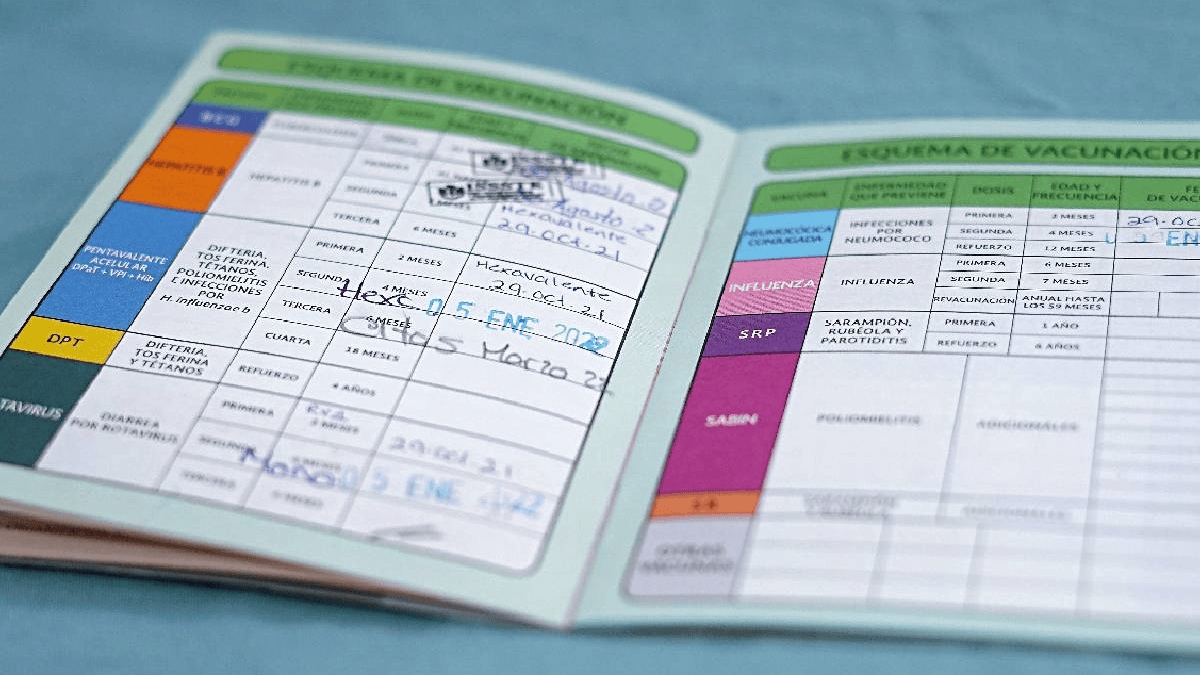 ESQUEMA DE VACUNACIÓN
BCG
HEPATITIS B
HEPATITIS B
PRIMERA
SEGUNDA
Agosto
TERCERA
6 MESES
Hexavalente
29.oct.21
PENTAVALENTE
ACELULAR
DPaT + VPI + Hib
DIFTERIA,
TOS FERINA,
TÉTANOS,
POLIOMIELITIS
E INFECCIONES
POR
H. influenzae b
PRIMERA
2 MESES
Hexavalente
29.oct.21
SEGUNDA
4 MESES
05 ENE 2022
TERCERA
6 MESES
5 Marzo 22
CUARTA
18 MESES
DPT
DIFTERIA,
TOS FERINA
Y TÉTANOS
REFUERZO
4 AÑOS
TAVIRUS
DIARREA
POR ROTAVIRUS
PRIMERA
2 MESES
29.oct.21
SEGUNDA
05 ENE 2022
TERCERA
ESQUEMA DE VACUNACIÓN
VACUNA
ENFERMEDAD
QUE PREVIENE
DOSIS
EDAD Y
FRECUENCIA
FE
DE VACU
NEUMOCÓCICA
CONJUGADA
INFECCIONES
POR
NEUMOCOCO
PRIMERA
2 MESES
29.oc
SEGUNDA
4 MESES
EN
REFUERZO
12 MESES
INFLUENZA
INFLUENZA
PRIMERA
6 MESES
SEGUNDA
7 MESES
REVACUNACIÓN
ANUAL HASTA
LOS 59 MESES
SRP
SARAMPIÓN,
RUBÉOLA Y
PAROTIDITIS
PRIMERA
1 AÑO
REFUERZO
6 AÑOS
SABIN
POLIOMIELITIS
ADICIONALES
SR
ADICIONALES
OTRAS
VACUNAS